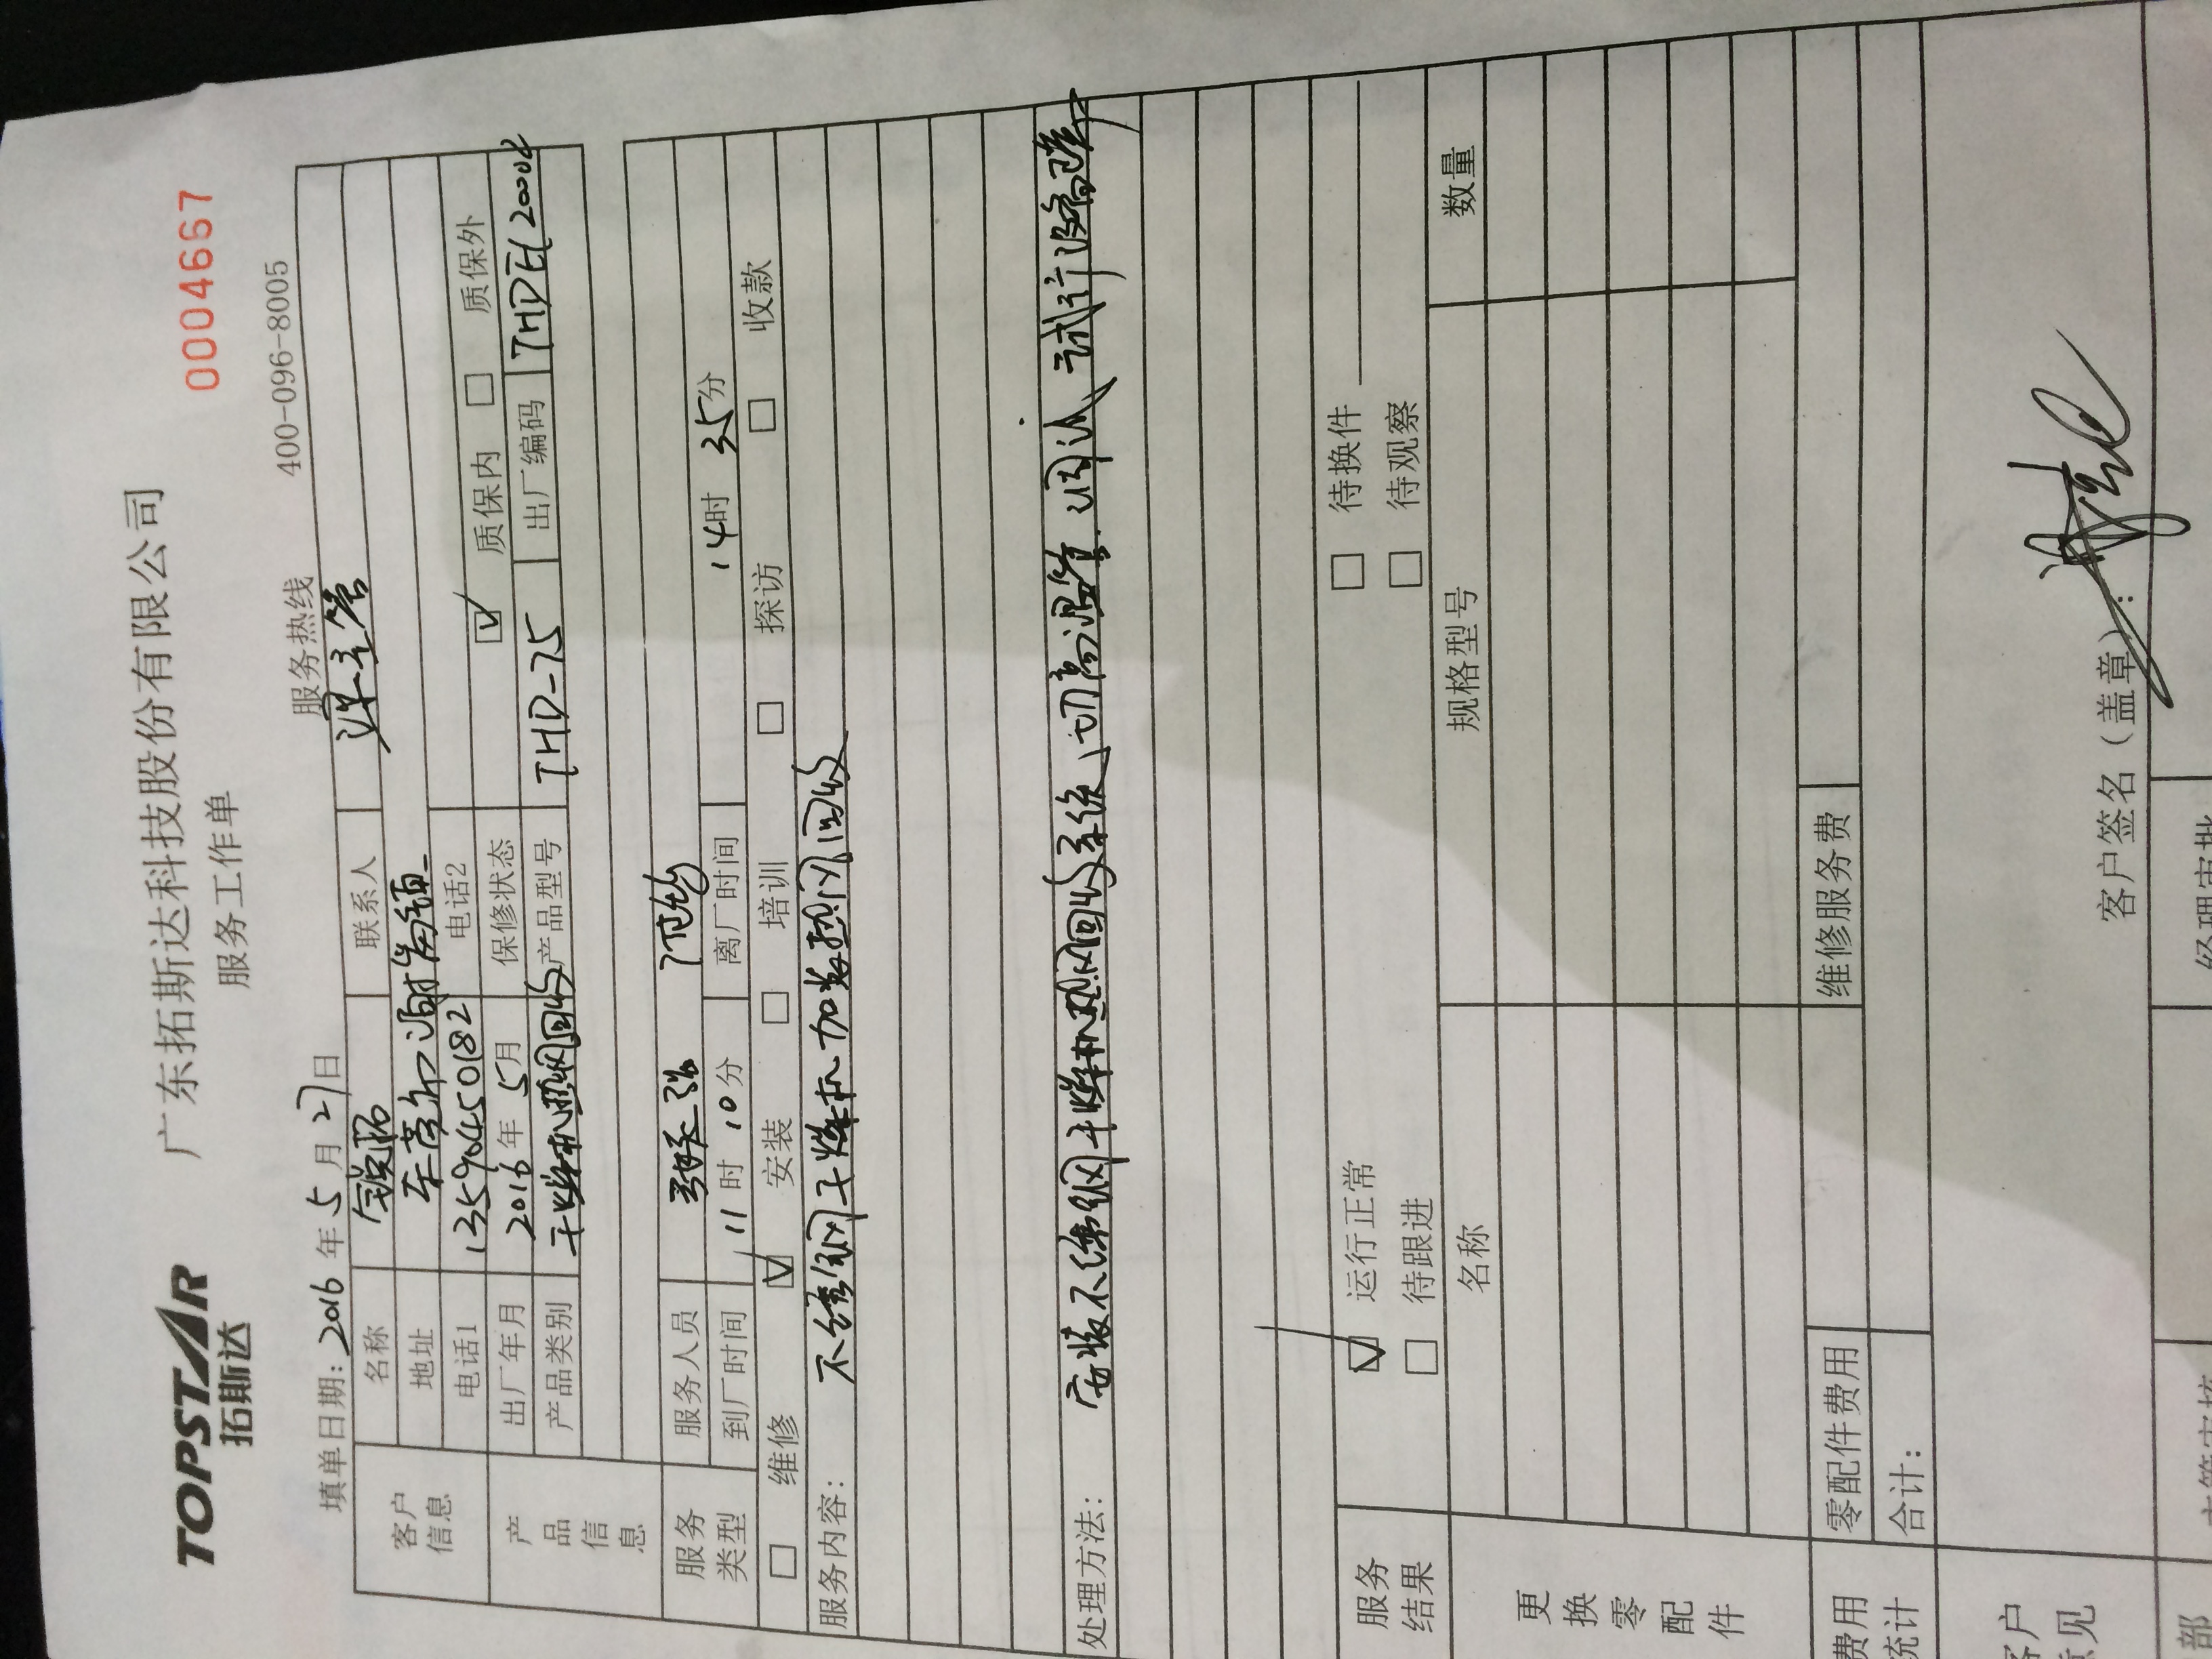 TOPSTAR
拓斯达
广东拓斯达科技股份有限公司
服务工作单
0004667
填单日期: 2016 年 5 月 27 日
服务热线 400-096-8005
客户信息
名称 锐拓 联系人 主管
地址
电话1 13590450182 电话2
产品信息
出厂年月 2016 年 5 月 保修状态 ☑ 质保内 □ 质保外
产品类别 干燥机热风回收 产品型号 THD-75 出厂编码
服务类型
服务人员
到厂时间 11 时 10 分 离厂时间 14 时 35 分
□ 维修 ☑ 安装 □ 培训 □ 探访 □ 收款
服务内容: 不锈钢干燥机加装热风回收
处理方法: 安装不锈钢干燥机热风回收系统
服务结果
☑ 运行正常 □ 待换件
□ 待跟进 □ 待观察
更换零配件
名称 规格型号 数量
费用统计
零配件费用 维修服务费
合计:
客户意见
客户签名（盖章）: